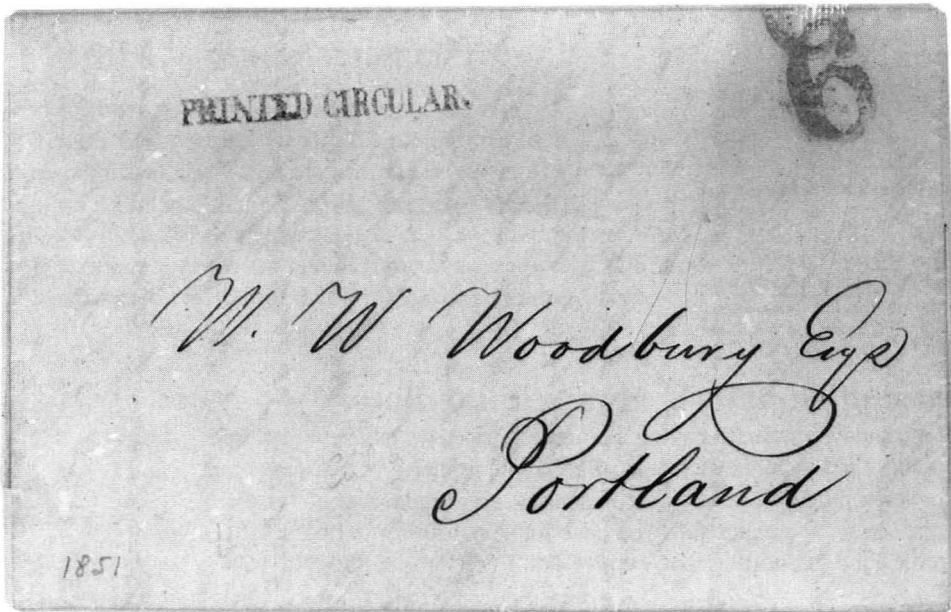 PRINTED CIRCULAR.
6
W. W Woodbury Esqr
Portland
1851